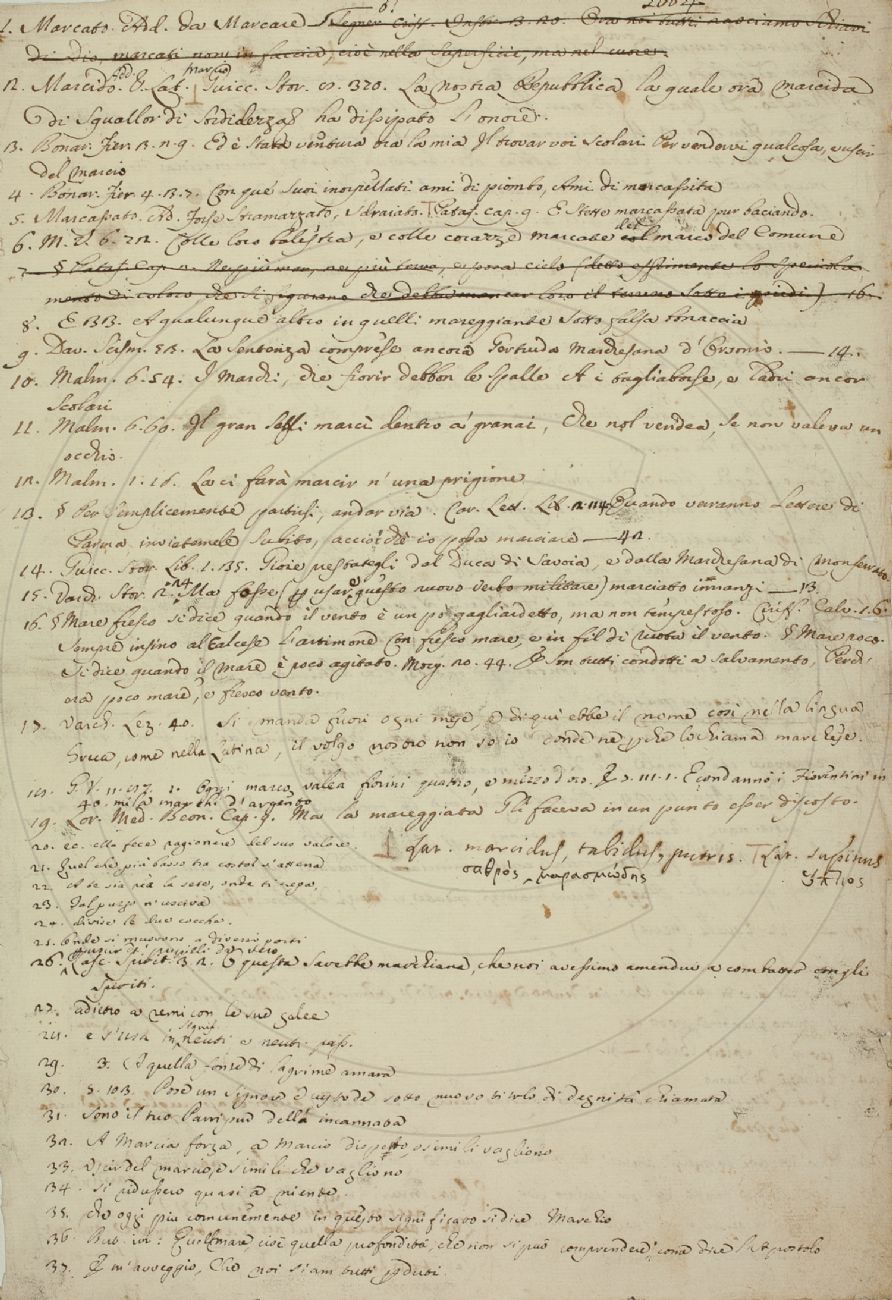 1. Marcato. Add. da Marcare Segner Crist. Instr. 3. 20. Ora noi tutti nasciamo schiavi
di Dio, marcati non in faccia, cioè nella superficie, ma nel cuore.
2. Marcido. Add. V. Lat. marcio Guicc. Stor. 320. La nostra Repubblica la quale ora marcida
di Squallor di Sordidezza ha dissipato l'onore.
3. Bonar. Fier. 3. 2. 9. Ed è stata ventura ora la mia Il trovar voi scolari Per vendervi qualcosa, e uscir
del marcio
4. Bonar. Fier. 4. 3. 7. Con que' suoi inorpellati ami di piombo, Ami di marcassita
5. Marcassato. Add. Forse Stramazzato, Sdraiato. Pataf. cap. 9. E stette marcassata pur baciando.
6. M. V. 6. 72. Colle loro balestra, e colle corazze marcate del marco del Comune
7. § Pataf. Cap. 2. Nè più mar, nè più terra,
8. E 33. A qualunque altro in quelli mareggiante sotto falsa bonaccia
9. Dav. Scism. 53. La Sentenza comprese ancora Gertruda Marchesana d'Ersonio. — 14.
10. Malm. 6. 54. I Marchi, che fiorir debbon le spalle A i tagliaborse, e ladri ancor
scolari
11. Malm. 6. 60. Il gran lasci marcì dentro a' granai, Che nol vendea, se non valeva un
occhio.
12. Malm. 1. 18. La ci farà marcir n'una prigione
13. § Per semplicemente partirsi, andar via. Car. Lett. Lib. 2. 114 Quando verranno lettere di
Parma, inviatemele subito, acciocchè io possa marciare — 42.
14. Guicc. Stor. Lib. 1. 35. Gioie prestategli dal Duca di Savoia, e dalla Marchesana di Monferrato.
15. Varch. Stor. 12. Ma fosse (per usare questo nuovo verbo militare) marciato innanzi — 13
16. § Mare fresco si dice quando il vento è un po' gagliardetto, ma non tempestoso. Calv. 1. 6.
Sempre insino al Calcese l'artimone Con fresco mare, e in fil di ruota il vento. § Mare poco.
Si dice quando il mare è poco agitato. Morg. 20. 44. E' son tutti condotti a salvamento, Perch'
era poco mare, e fresco vento.
17. Varch. Lez. 40. Si manda fuori ogni mese, e di qui ebbe il nome così nella lingua
Greca, come nella Latina, il volgo nostro non so io donde nè perchè lo chiama marchese.
18. G. V. 11. 1. Ogni marco valea fiorini quattro, e mezzo d'oro. E condannò i Fiorentini in
40. mila marchi d'argento
19. Lor. Med. Beon. Cap. 9. Ma la mareggiata Gli faceva in un punto esser discosto.
20. ec. ella fece ragionare del suo valore. Lat. marcidus, tabidus, putris. Lat. supinus
21. Quel che più basso tra costor s'atterra σαθρός, μαρασμώδης ὕπτιος
22. A te sia rea la sete, onde ti crepa,
23. Dal puzzo n'usciva
24. divise le due cocche.
25. Onde si muovono a diversi porti
26. Lasc. Spirit. 3. 2. O questa sarebbe marchiana, che noi avessimo amendue a combatter con gli
Spiriti.
27. addietro a remi con le sue galee
28. e s'usa in signif. neut. e neutr. pass.
29. 3. E quella fonte di lagrime amara
30. 5. 103. Pose un Signore e custode sotto nuovo titolo di degnità chiamata
31. Sono il tuo Parri pur della incannata
32. A Marcia forza, a Marcio dispetto, e simili vagliono
33. Uscir del marcio, e simili che vagliono
34. Si ridussero quasi a niente.
35. che oggi più comunemente in questo significato si dice Marchio
36. But. ivi: Quel mare cioè quella profondità, che non si può comprendere, come dice l'Apostolo
37. E m'avveggio, Che noi siam tutti perduti.